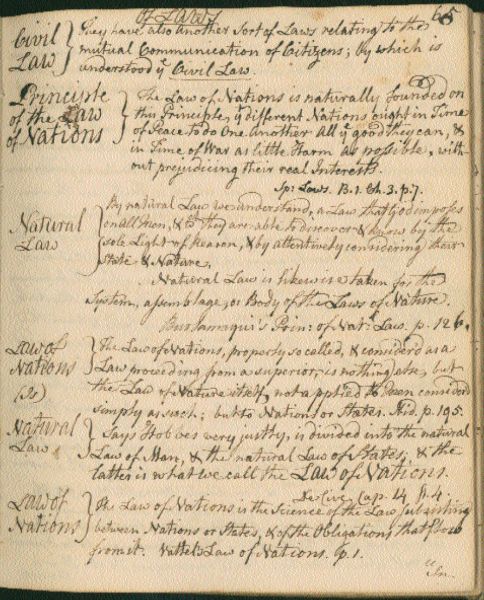 Of Law 65
Civil Law } They have also another Sort of Laws relating to the
mutual Communication of Citizens; By which is
understood ye Civil Law.
Principle of the Law of Nations } The Law of Nations is naturally founded on
this Principle, yt different Nations ought in Time
of Peace to do one Another All ye good they can, &
in Time of War as little Harm as possible, with-
out prejudicing their real Interests.
Sp: Laws. B. 1. Ch. 3. p. 7.
Natural Law } By natural Law we understand, a Law that God imposes
on all Men, & wch they are able to discover & know by the
sole Light of Reason, & by attentively considering their
State & Nature.
Natural Law is likewise taken for the
System, assemblage, or Body of the Laws of Nature.
Burlamaqui's Prin: of Natl Law. p. 126.
Law of Nations (Is) } The Law of Nations, properly so called, & considerd as a
Law proceeding from a superior, is nothing else, but
the Law of Nature itself, not applied to Men considerd
simply as such; but to Nations or States. Ibid. p. 195.
Natural Law } Says Hobbes very justly, is divided into the natural
Law of Man, & the natural Law of States, & the
latter is what we call the Law of Nations.
De Cive. Cap. 14. §. 4.
Law of Nations } The Law of Nations is the Science of the Law subsisting
between Nations or States, & of the Obligations that flow
from it. Vattel's Law of Nations. p. 1.
"In